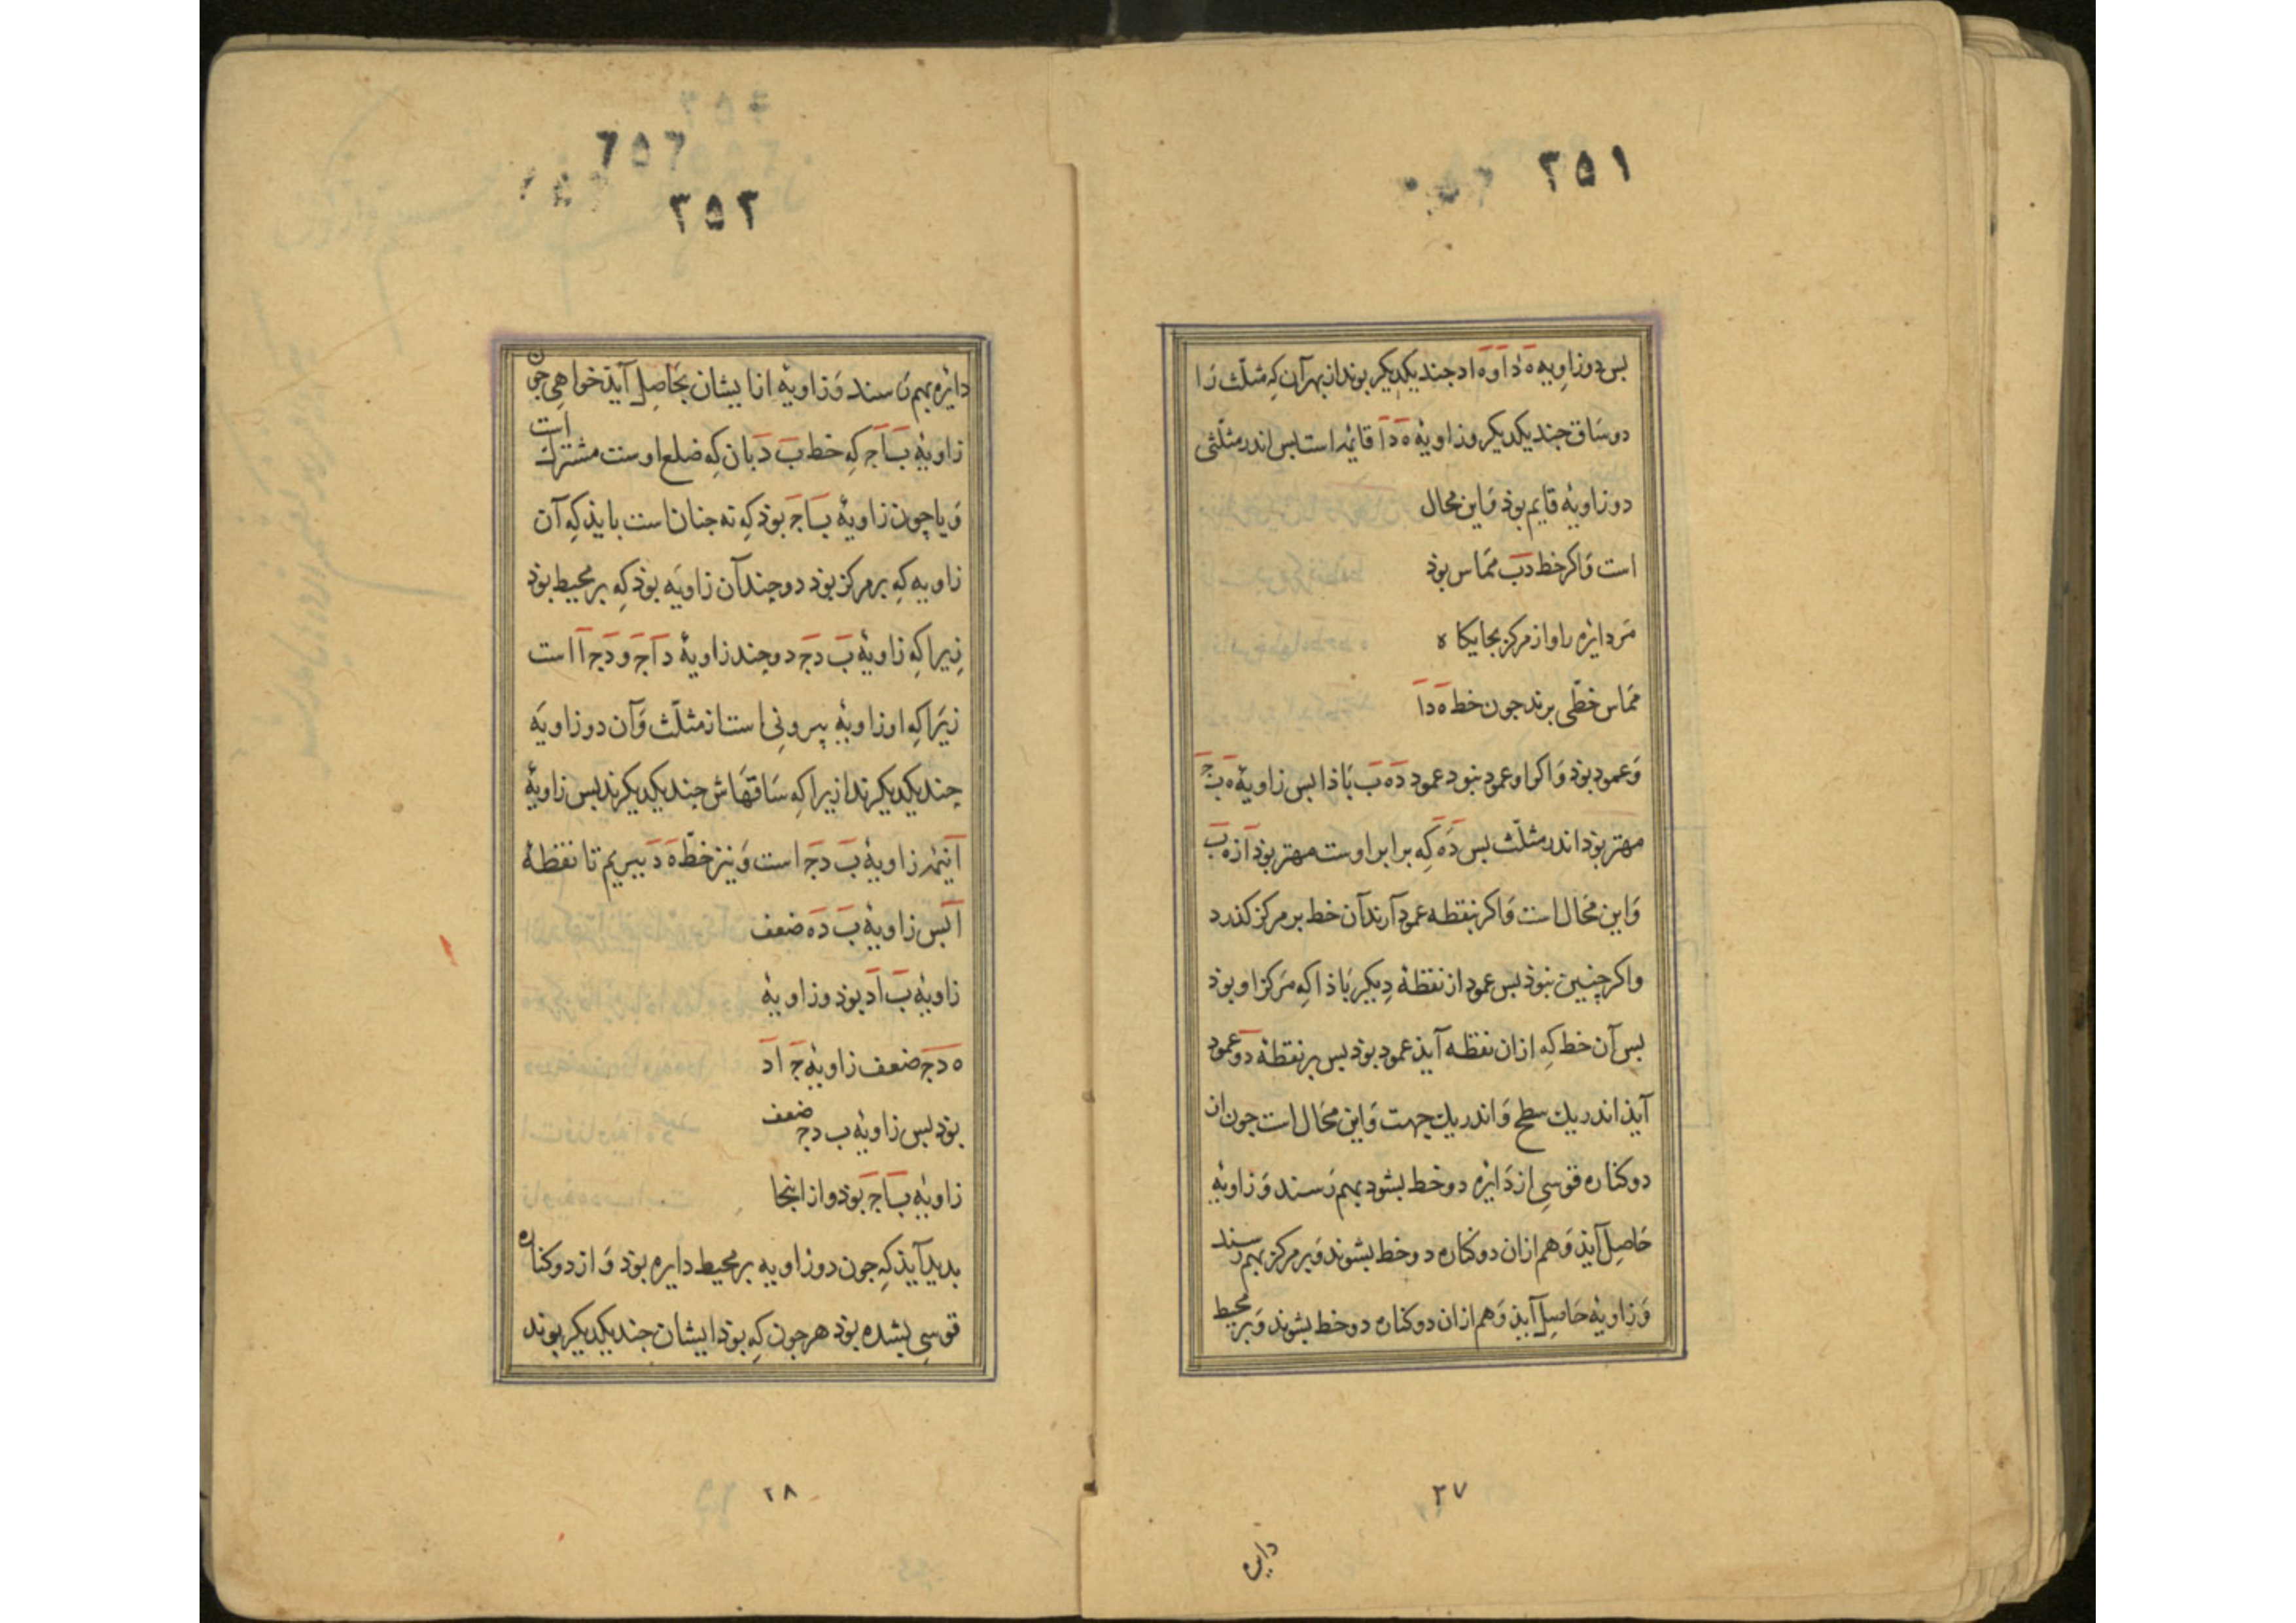 ۳۵۱
بس دو زاویه ه د ا و ه ا د جند یکدیکر بوند از بهر آن که مثلّث را
دو ساق جند یکدیکر و زاویهٔ ه د ا قایمه است بس اندر مثلّثی
دو زاویه قایم بوذ وَاین محال
است وَاکر خط دب ممَاس بوذ
مَر دایره را و از مرکز بجایکاه
ممَاس خطّی برند جون خط ه د ا
وَعمود بوذ وَاکر او عمود نبود عمود ده ب بَاذا بس زاویهٔ ه ب
مهتر بوذ اندر مثلّث بس ده که برابر اوست مهتر بوذ از ه ب
وَاین محَال است وَاکر بنقطه عمود آرند آن خط بر مرکز کذرد
واکر چنین نبوذ بس عمود از نقطهٔ دیکر بَاذا که مَرکز او بوذ
بس آن خط که ازان نقطه آیذ عمود بوذ بس بر نقطهٔ د دو عمود
آیذ اندر یك سطح وَاندر یك جهت وَاین محَال است جون از
دو کناره قوسی از دَایره دو خط بشود بهم رَسند وَزاویهٔ
حَاصِل آیذ وَهم ازان دو کناره دو خط بشوند وَبر مرکز بهم رسند
وَزاویهٔ حَاصِل آیذ وَهم ازان دو کناره دو خط بشوند وَبر محیط
۲۷
دایره
۷۵۷
۳۵۲
دایره بهم رَسند وَزاویهٔ ازایشان بحَاصِل آیذ خواهی جون
زاویهٔ ب ا ج که خط ب د بان که ضلع اوست مشترک است
وَیا چون زاویهٔ ب ا ج بوذ که نه جنان است بایذ که آن
زاویه که بر مرکز بوذ دو چند آن زاویَه بوذ که بر محیط بوذ
زیرا که زاویهٔ ب د ج دو چند زاویهٔ د ا ج و د ج ا است
زیَرا که او زاویهٔ بیرونی است از مثلّث وَآن دو زاویَه
چند یکدیکرند ازیرا که سَاقهَاش جند یکدیکرند بس زاویهٔ
ا نیمه زاویهٔ ب د ج است وَنیز خطّ ه د ببریم تا نقطهٔ
ا بس زاویهٔ ب د ه ضعف
زاویهٔ ب ا د بوذ و زاویهٔ
ه د ج ضعف زاویهٔ ج ا د
بوذ بس زاویهٔ ب د ج ضعف
زاویهٔ ب ا ج بوذ و از اینجا
بدید آیذ که جون دو زاویه بر محیط دایره بوذ وَاز دو کناره
قوسی بشده بوذ هر جون که بوذ ایشان جند یکدیکر بوند
۲۸